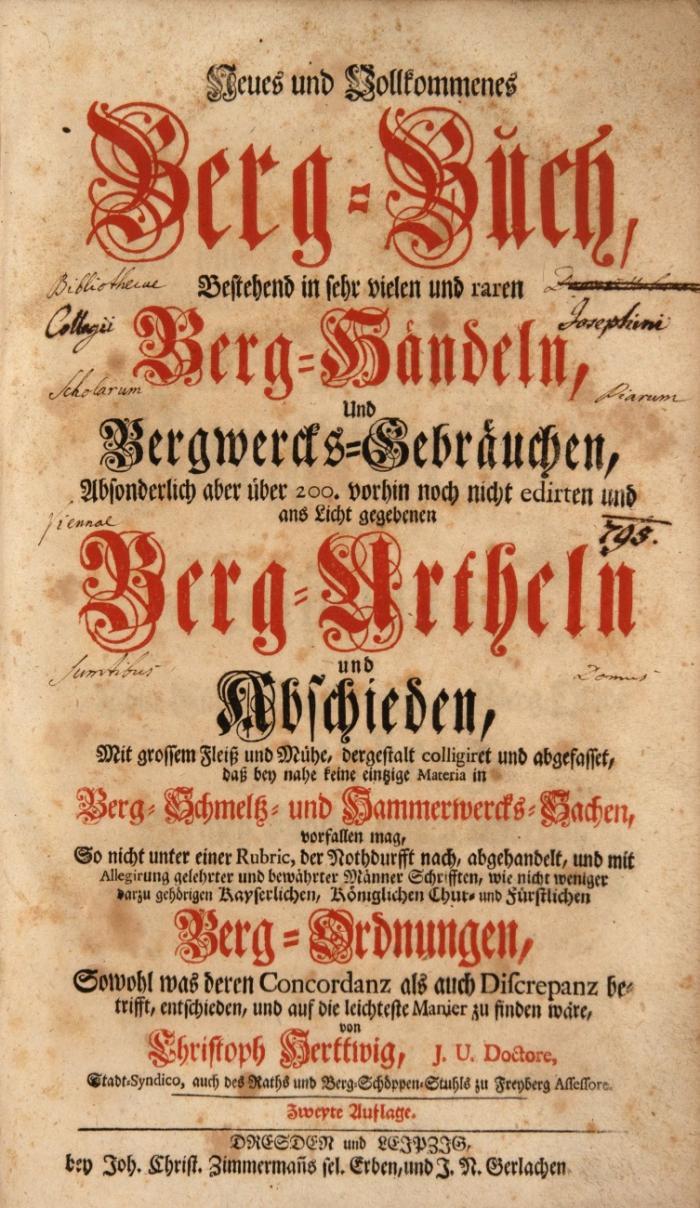 Neues und Vollkommenes
Berg-Buch,
Bibliothecae
Bestehend in sehr vielen und raren
Collegii
Berg-Händeln,
Josephini
Scholarum
Piarum
Und
Bergwercks-Gebräuchen,
Absonderlich aber über 200. vorhin noch nicht edirten und
ans Licht gegebenen
Viennae
795.
Berg-Urtheln
und
Sumtibus
Domus
Abschieden,
Mit grossem Fleiß und Mühe, dergestalt colligiret und abgefasset,
daß bey nahe keine eintzige Materia in
Berg- Schmeltz- und Hammerwercks-Sachen,
vorfallen mag,
So nicht unter einer Rubric, der Nothdurfft nach, abgehandelt, und mit
Allegirung gelehrter und bewährter Männer Schrifften, wie nicht weniger
darzu gehörigen Kayserlichen, Königlichen Chur- und Fürstlichen
Berg-Ordnungen,
Sowohl was deren Concordanz als auch Discrepanz be-
trifft, entschieden, und auf die leichteste Manier zu finden wäre,
von
Christoph Herttwig, J. U. Doctore,
Stadt-Syndico, auch des Raths und Berg-Schöppen-Stuhls zu Freyberg Assessore.
Zweyte Auflage.
DRESDEN und LEIPZIG,
bey Joh. Christ. Zimmermañs sel. Erben, und J. N. Gerlachen